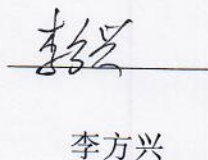 李方兴
李方兴